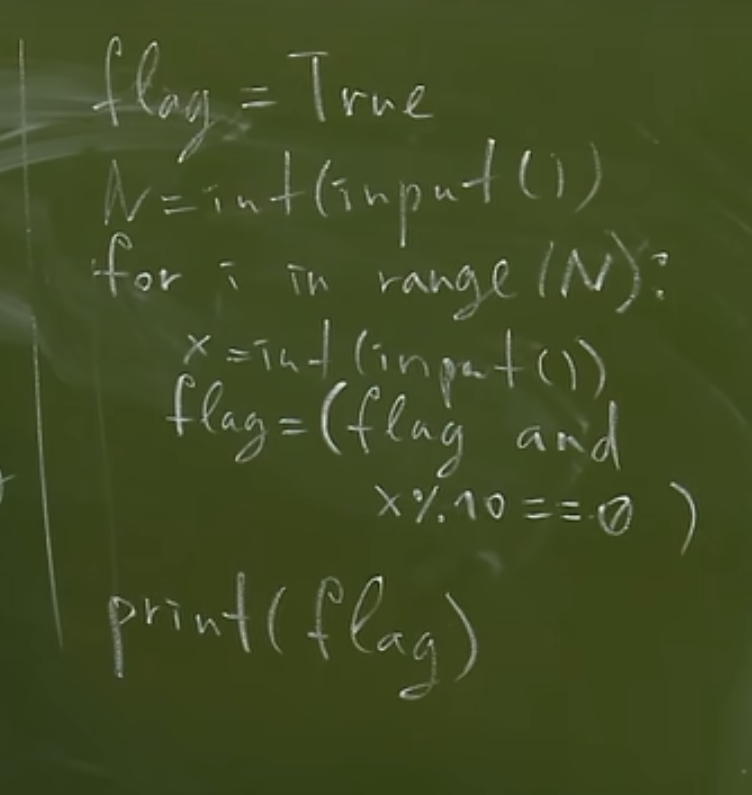 flag = True
N = int(input())
for i in range(N):
x = int(input())
flag = (flag and
x%10 == 0)
print(flag)